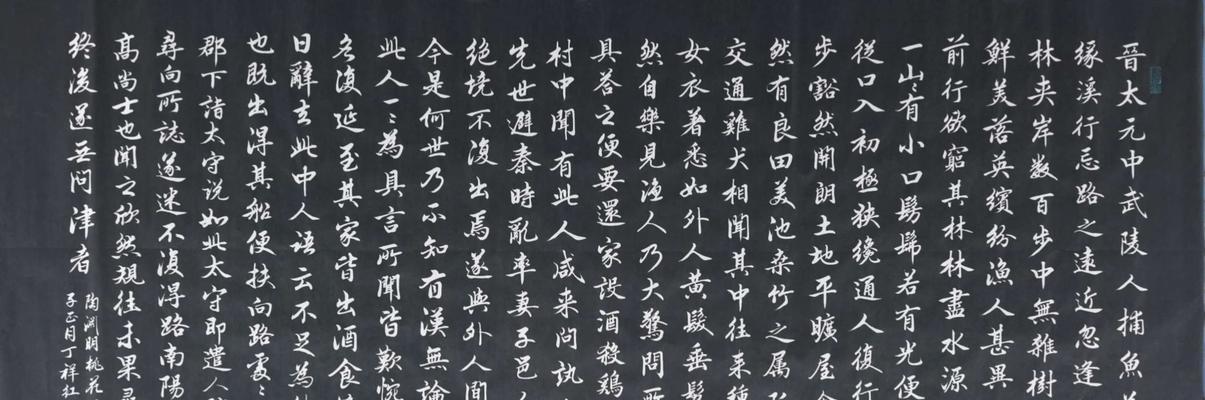 晉太元中武陵人捕魚
緣溪行忘路之遠近忽逢
林夾岸數百步中無雜樹
鮮美落英繽紛漁人甚異
前行欲窮其林林盡水源
一山山有小口髣髴若有光便
從口入初極狹纔通人復行
步豁然開朗土地平曠屋
然有良田美池桑竹之属
交通雞犬相聞其中往来種
女衣著悉如外人黄髮垂髫
然自樂見漁人乃大驚問所
具答之便要還家設酒殺鷄
村中聞有此人咸来問訊
先世避秦時亂率妻子邑
絶境不復出焉遂與外人間
今是何世乃不知有漢無論
此人一ミ為具言所聞皆歎惋
各復延至其家皆出酒食
日辭去此中人語云不足為
也既出得其船便扶向路處ミ
郡下詣太守説如此太守即遣人
尋向所誌遂迷不復得路南陽
髙尚士也聞之欣然規往未果尋
終後遂無问津者
陶渊明桃花
子正月丁祥红